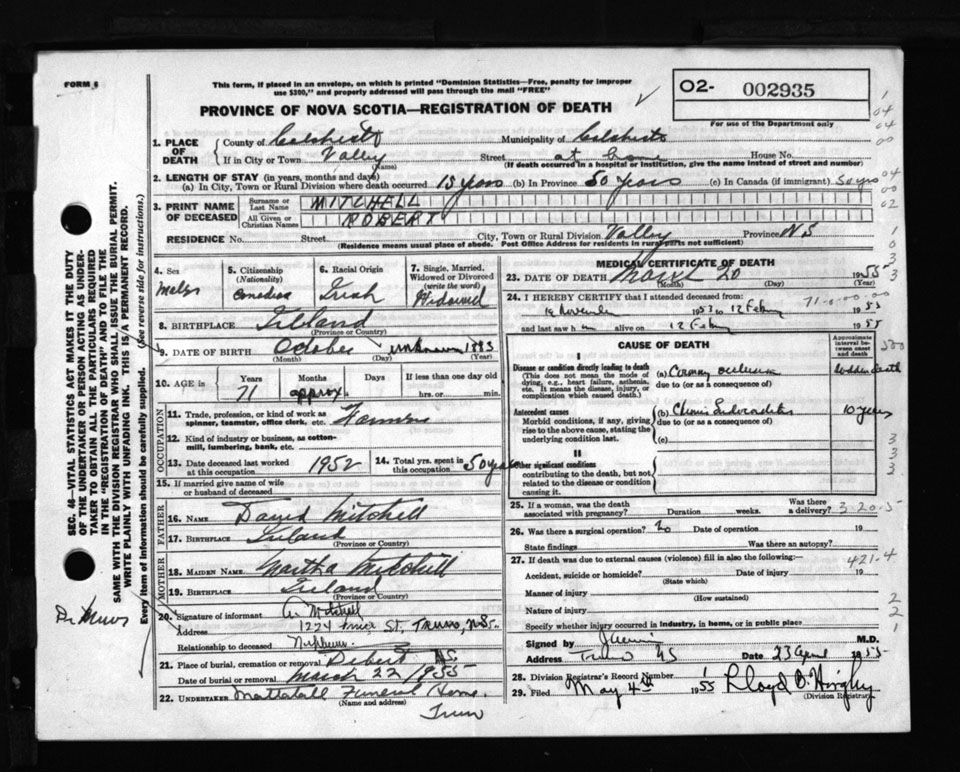 FORM 6
This form, if placed in an envelope, on which is printed "Dominion Statistics—Free, penalty for improper
use $300," and properly addressed will pass through the mail "FREE"
O2- 002935
For use of the Department only
PROVINCE OF NOVA SCOTIA—REGISTRATION OF DEATH
1. PLACE OF DEATH
County of Colchester Municipality of Colchester
If in City or Town Valley Street at home House No.
(Name) (If death occurred in a hospital or institution, give the name instead of street and number)
2. LENGTH OF STAY (in years, months and days)
(a) In City, Town or Rural Division where death occurred 15 years (b) In Province 50 years (c) In Canada (if immigrant) 50 yrs
3. PRINT NAME OF DECEASED
Surname or Last Name MITCHELL
All Given or Christian Names ROBERT
RESIDENCE No. Street City, Town or Rural Division Valley Province NS
(Residence means usual place of abode. Post Office Address for residents in rural parts not sufficient)
4. Sex
Male
5. Citizenship (Nationality)
Canadian
6. Racial Origin
Irish
7. Single, Married, Widowed or Divorced (write the word)
Widowed
8. BIRTHPLACE Ireland
(Province or Country)
9. DATE OF BIRTH October unknown 1883
(Month) (Day) (Year)
10. AGE Years Months Days If less than one day old
71 approx. hrs. or min.
OCCUPATION
11. Trade, profession, or kind of work as
spinner, teamster, office clerk, etc. Farmer
12. Kind of industry or business, as cotton-
mill, lumbering, bank, etc.
13. Date deceased last worked
at this occupation 1952
14. Total yrs. spent in
this occupation 50 years
15. If married give name of wife
or husband of deceased
FATHER
16. NAME David Mitchell
17. BIRTHPLACE Ireland
(Province or Country)
MOTHER
18. MAIDEN NAME Martha Mitchell
19. BIRTHPLACE Ireland
(Province or Country)
20. Signature of informant A. Mitchell
Address St, Truro, N.S.
Relationship to deceased Nephew
21. Place of burial, cremation or removal Debert NS.
Date of burial or removal March 22 / 1955
22. UNDERTAKER Mattatall Funeral Home.
(Name and address)
Truro
MEDICAL CERTIFICATE OF DEATH
23. DATE OF DEATH March 20 1955
(Month) (Day) (Year)
24. I HEREBY CERTIFY that I attended deceased from: 71-0-00-00
November 1953 to 12 Feby 1955
and last saw him alive on 12 Feby 1955
CAUSE OF DEATH
Approximate interval between onset and death
I
Disease or condition directly leading to death
This does not mean the mode of dying, e.g., heart failure, asthenia, etc. It means the disease, injury, or complication which caused death.
(a) Coronary occlusion sudden death
due to (or as a consequence of)
Antecedent causes
Morbid conditions, if any, giving rise to the above cause, stating the underlying condition last.
(b) Chronic 10 years
due to (or as a consequence of)
(c)
II
Other significant conditions
contributing to the death, but not related to the disease or condition causing it.
25. If a woman, was the death
associated with pregnancy? Duration weeks. Was there a delivery? 3-20-5
26. Was there a surgical operation? no Date of operation 19
State findings Was there an autopsy?
27. If death was due to external causes (violence) fill in also the following:— 421-4
Accident, suicide or homicide? Date of injury 19
(State which)
Manner of injury
(How sustained)
Nature of injury
Specify whether injury occurred in industry, in home, or in public place
Signed by M.D.
Address Truro NS Date 23 April 1955
28. Division Registrar's Record Number
29. Filed May 4th 1955 Lloyd
(Division Registrar)
SEC. 46—VITAL STATISTICS ACT MAKES IT THE DUTY
OF THE UNDERTAKER OR PERSON ACTING AS UNDER-
TAKER TO OBTAIN ALL THE PARTICULARS REQUIRED
IN THE "REGISTRATION OF DEATH" AND TO FILE THE
SAME WITH THE DIVISION REGISTRAR WHO SHALL ISSUE THE BURIAL PERMIT.
WRITE PLAINLY WITH UNFADING INK. THIS IS A PERMANENT RECORD.
Every item of information should be carefully supplied. (See reverse side for instructions.)